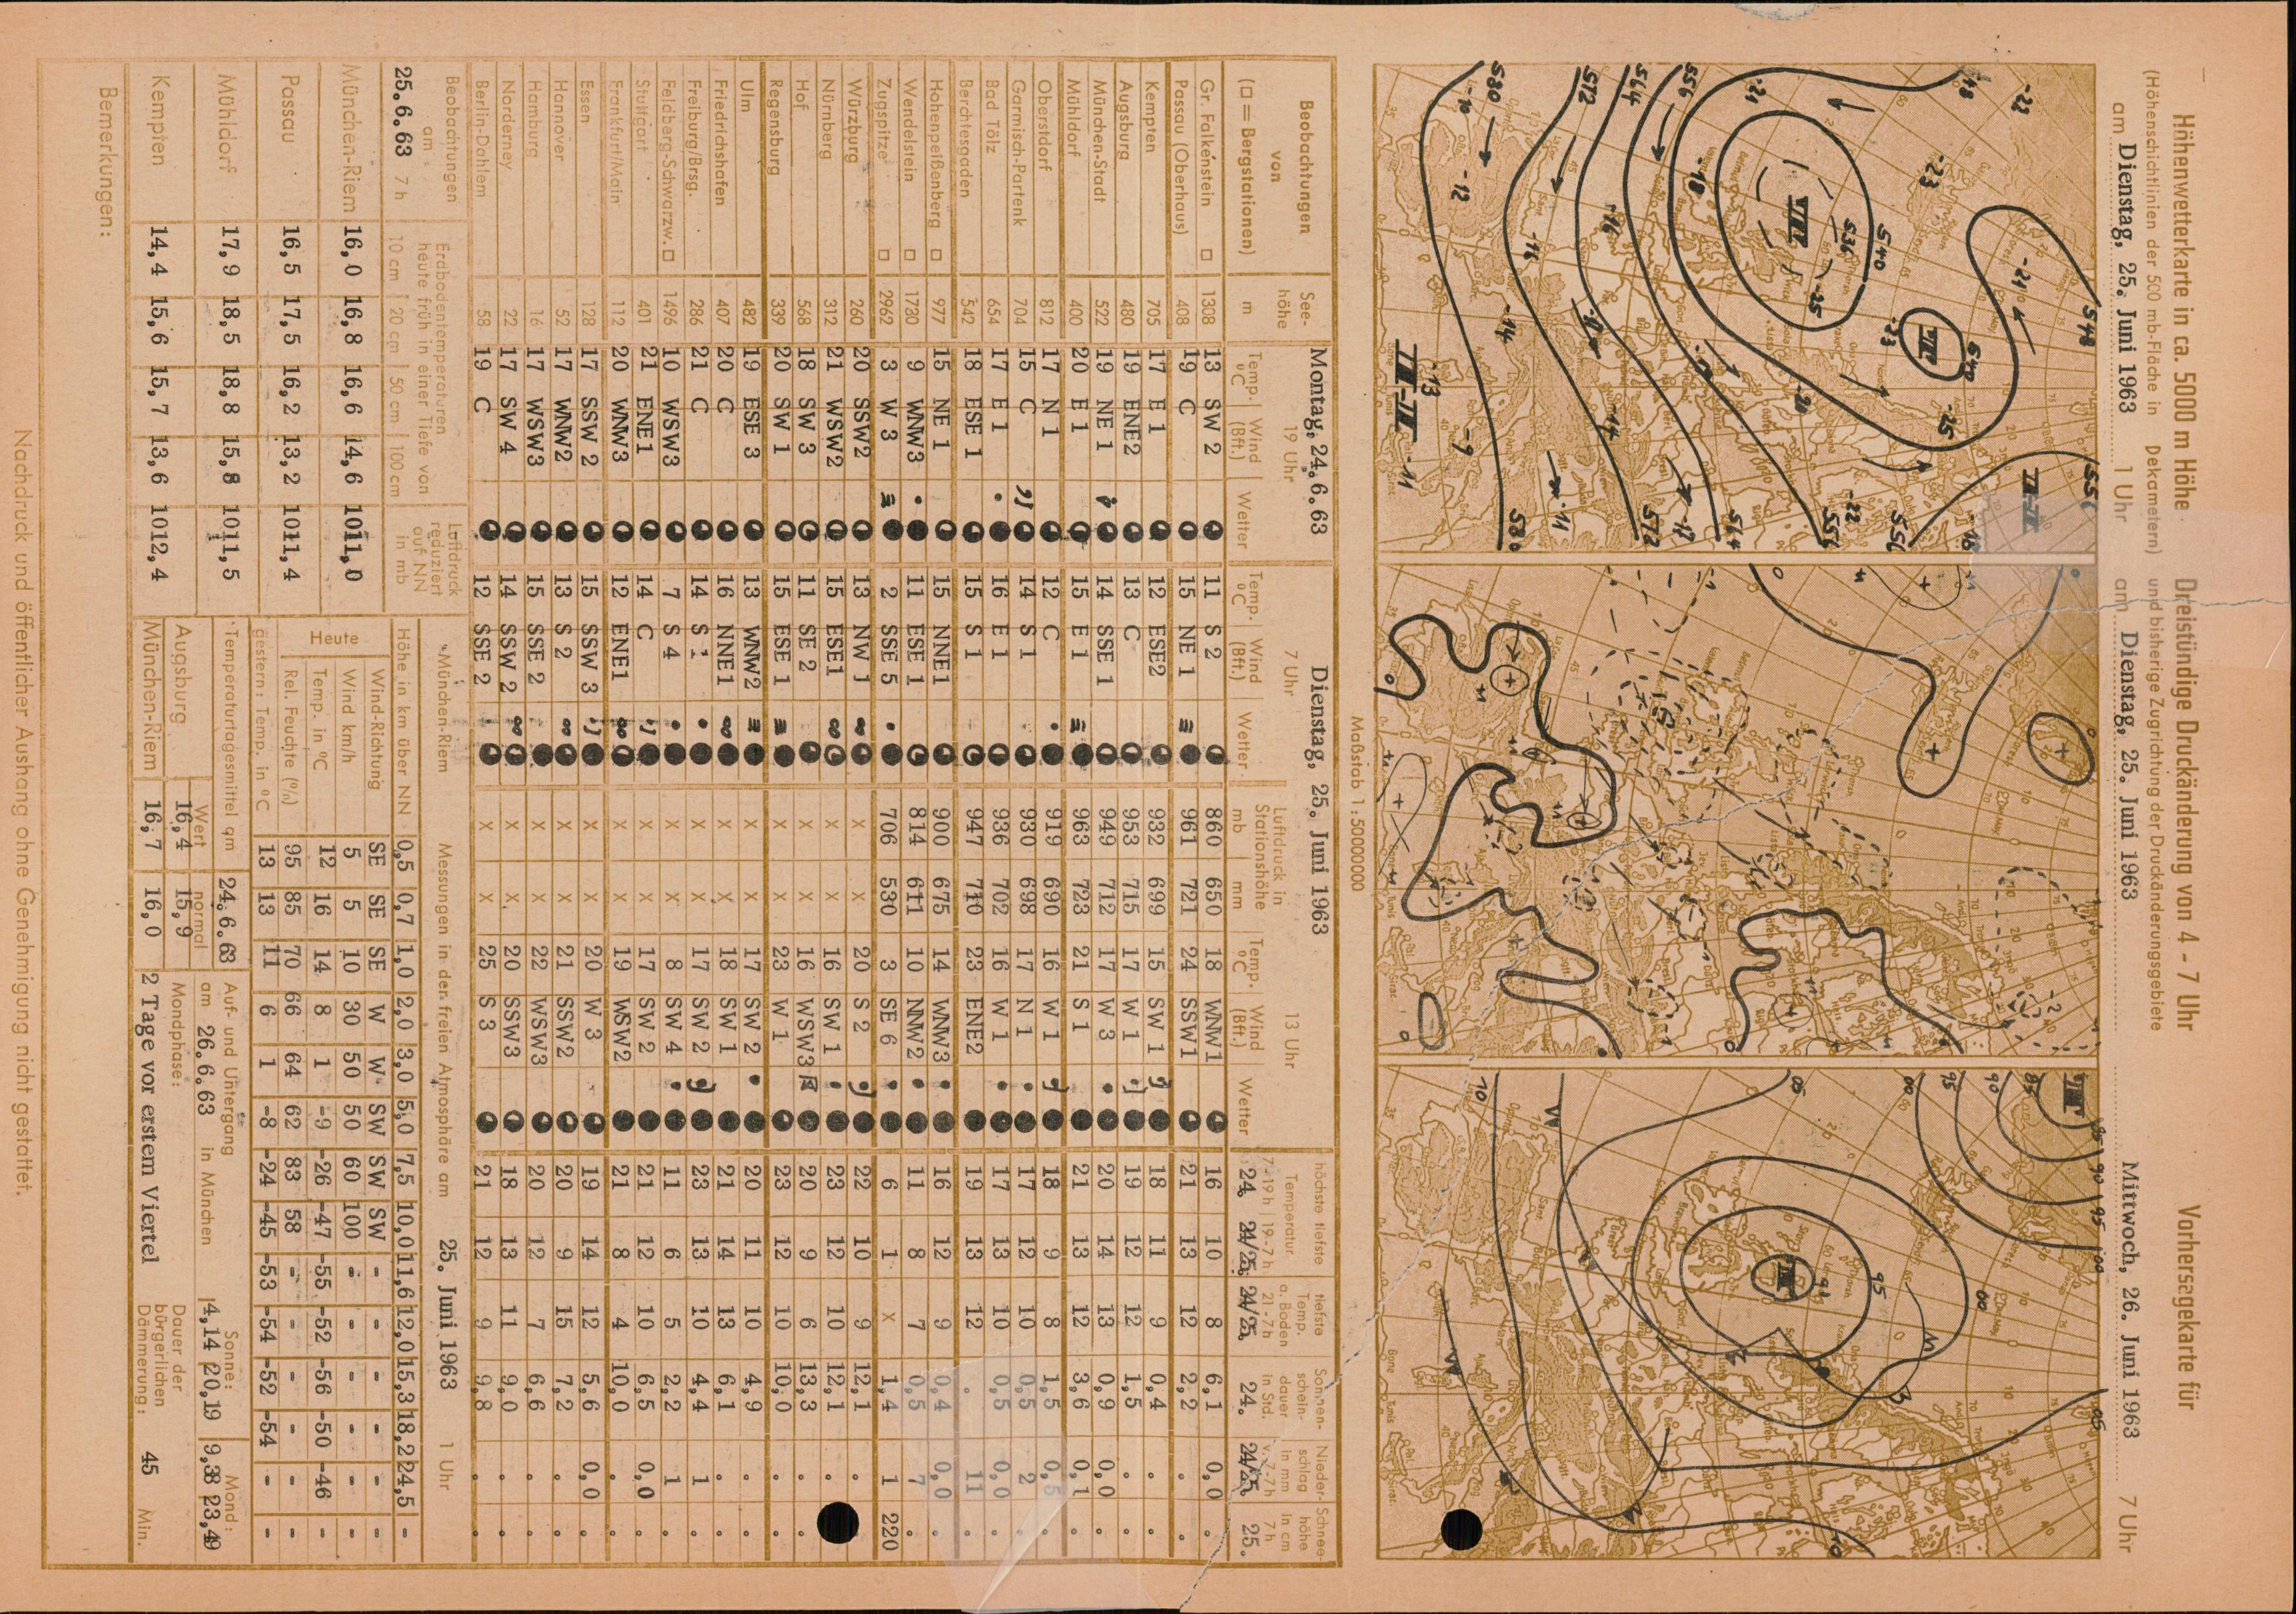 Höhenwetterkarte in ca. 5000 m Höhe
(Höhenschichtlinien der 500 mb-Fläche in Dekametern)
am Dienstag, 25. Juni 1963 1 Uhr
Dreistündige Druckänderung von 4 - 7 Uhr
und bisherige Zugrichtung der Druckänderungsgebiete
am Dienstag, 25. Juni 1963
Vorhersagekarte für
Mittwoch, 26. Juni 1963 7 Uhr
-22 -18 -23 -21 548 540 -23 -25 556 -18
536 540 -25 -20 -22 556
-21 -18 556 564 -16 572 -14 -17 564 572
580 -10 -12 -16 -14 -11 580 -13 -9 -11
85 90 95 00 05 10
Maßstab 1 : 50000000
Beobachtungen von (□ = Bergstationen) Seehöhe m Montag, 24.6.63 19 Uhr Dienstag, 25. Juni 1963 7 Uhr 13 Uhr
Temp. °C Wind (Bft.) Wetter Temp. °C Wind (Bft.) Wetter Luftdruck in Stationshöhe mb mm Temp. °C Wind (Bft.) Wetter höchste tiefste Temperatur 7-19 h 19-7 h 24. 24/25. tiefste Temp. a. Boden 21-7 h 24/25. Sonnen-scheindauer in Std. 24. Niederschlag in mm v. 7-7 h 24/25. Schneehöhe 7 h in cm 25.
Gr. Falkenstein □ 1308 13 SW 2 11 S 2 860 650 18 WNW1 16 10 8 6,1 0,0 .
Passau (Oberhaus) 408 19 C 15 NE 1 961 721 24 SSW1 21 13 12 2,2 . .
Kempten 705 17 E 1 12 ESE2 932 699 15 SW 1 18 11 9 0,4 . .
Augsburg 480 19 ENE2 13 C 953 715 17 W 1 19 12 12 1,5 . .
München-Stadt 522 19 NE 1 14 SSE 1 949 712 17 W 3 20 14 13 0,9 0,0 .
Mühldorf 400 20 E 1 15 E 1 963 723 21 S 1 21 13 12 3,6 0,1 .
Oberstdorf 812 17 N 1 12 C 919 690 16 W 1 18 9 8 1,5 0,5 .
Garmisch-Partenk 704 15 C 14 S 1 930 698 17 N 1 17 12 10 0,5 2 .
Bad Tölz 654 17 E 1 16 E 1 936 702 16 W 1 17 13 10 0,5 0,0 .
Berchtesgaden 542 18 ESE 1 15 S 1 947 710 23 ENE2 19 13 12 . 11 .
Hohenpeißenberg □ 977 15 NE 1 15 NNE1 900 675 14 WNW3 16 12 9 0,4 0,0 .
Wendelstein □ 1730 9 WNW3 11 ESE 1 814 611 10 NNW2 11 8 7 0,5 7 .
Zugspitze □ 2962 3 W 3 2 SSE 5 706 530 3 SE 6 6 1 x 1,4 1 220
Würzburg 260 20 SSW2 13 NW 1 x x 20 S 2 22 10 9 12,1 . .
Nürnberg 312 21 WSW2 15 ESE1 x x 16 SW 1 23 12 10 12,1 .
Hof 568 18 SW 3 11 SE 2 x x 16 WSW3 20 9 6 13,3 . .
Regensburg 339 20 SW 1 15 ESE 1 x x 23 W 1 23 12 10 10,0 . .
Ulm 482 19 ESE 3 13 WNW2 x x 17 SW 2 20 11 10 4,9 . .
Friedrichshafen 407 20 C 16 NNE1 x x 18 SW 1 21 14 13 6,1 . .
Freiburg/Brsg. 286 21 C 14 S 1 x x 17 SW 2 23 13 10 4,4 1 .
Feldberg-Schwarzw. □ 1496 10 WSW3 7 S 4 x x 8 SW 4 11 6 5 2,2 1 .
Stuttgart 401 21 ENE1 14 C x x 17 SW 2 21 12 10 6,5 0,0 .
Frankfurt/Main 112 20 WNW3 12 ENE1 x x 19 WSW2 21 8 4 10,0 . .
Essen 128 17 SSW 2 15 SSW 3 x x 20 W 3 19 14 12 5,6 0,0 .
Hannover 52 17 WNW2 13 S 2 x x 21 SSW2 20 9 15 7,2 . .
Hamburg 16 17 WSW3 15 SSE 2 x x 22 WSW3 20 12 7 6,6 . .
Norderney 22 17 SW 4 14 SSW 2 x x 20 SSW3 18 13 11 9,0 . .
Berlin-Dahlem 58 19 C 12 SSE 2 x x 25 S 3 21 12 9 9,8 . .
Beobachtungen am 25.6.63 7 h
Erdbodentemperaturen heute früh in einer Tiefe von
10 cm 20 cm 50 cm 100 cm
Luftdruck reduziert auf NN in mb
München-Riem 16,0 16,8 16,6 14,6 1011,0
Passau 16,5 17,5 16,2 13,2 1011,4
Mühldorf 17,9 18,5 18,8 15,8 1011,5
Kempten 14,4 15,6 15,7 13,6 1012,4
München-Riem Messungen in der freien Atmosphäre am 25. Juni 1963 1 Uhr
Höhe in km über NN 0,5 0,7 1,0 2,0 3,0 5,0 7,5 10,0 11,6 12,0 15,3 18,2 24,5 -
Heute
Wind-Richtung SE SE SE W W SW SW SW - - - - - -
Wind km/h 5 5 10 30 50 50 60 100 - - - - - -
Temp. in °C 12 16 14 8 1 -9 -26 -47 -55 -52 -56 -50 -46 -
Rel. Feuchte (%) 95 85 70 66 64 62 83 58 - - - - - -
gestern: Temp. in °C 13 13 11 6 1 -8 -24 -45 -53 -54 -52 -54 - -
Temperaturtagesmittel am 24.6.63
Wert normal
Augsburg 16,4 15,9
München-Riem 16,7 16,0
Auf- und Untergang am 26.6.63 in München
Sonne: 4,14 20,19
Mond: 9,38 23,49
Mondphase: 2 Tage vor erstem Viertel
Dauer der bürgerlichen Dämmerung: 45 Min.
Bemerkungen:
Nachdruck und öffentlicher Aushang ohne Genehmigung nicht gestattet.